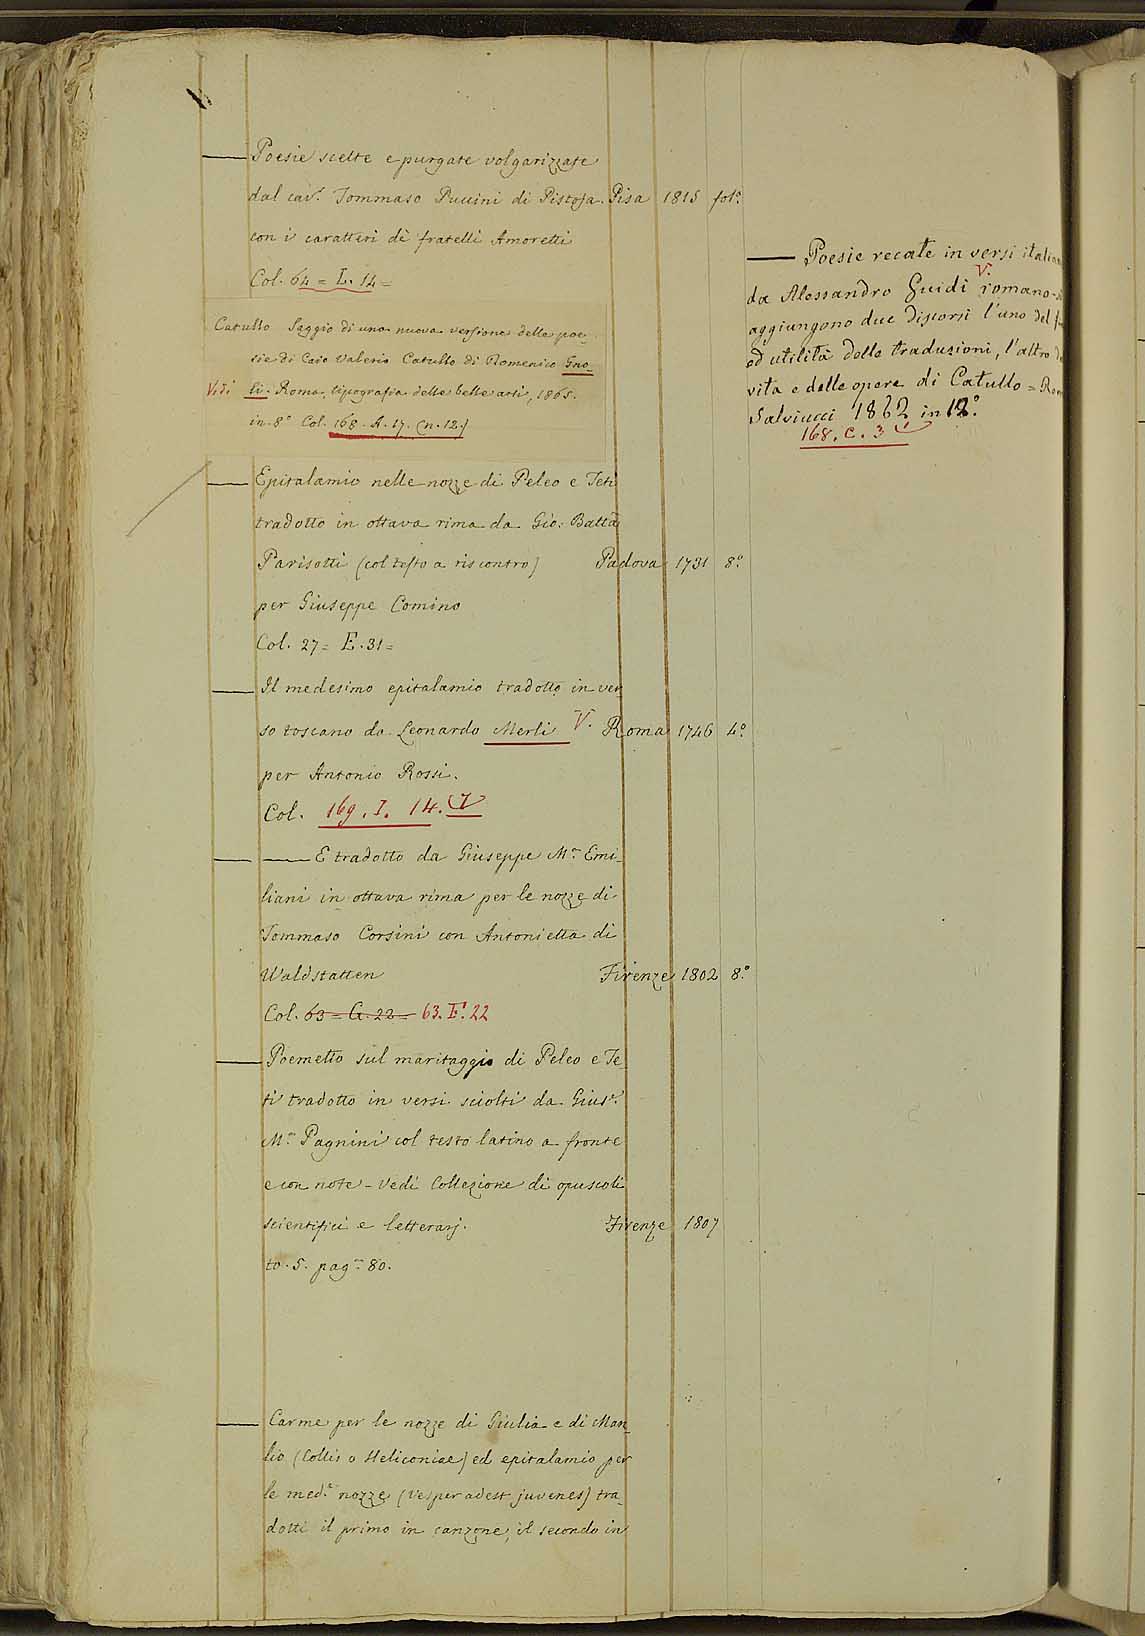 — Poesie scelte e purgate volgarizzate
dal cav.r Tommaso Puccini di Pistoja. Pisa 1815 fol.o
con i caratteri dè fratelli Amoretti
Col. 64 = L. 14 =
Catullo Saggio di una nuova versione delle poe-
sie di Caio Valerio Catullo di Domenico Gno-
Vedi li. Roma, tipografia delle belle arti, 1865.
in 8° Col. 168. A. 17. (n. 12.)
— Epitalamio nelle nozze di Peleo e Teti
tradotto in ottava rima da Gio: Batta
Parisotti (col testo a riscontro) Padova 1731 8.o
per Giuseppe Comino
Col. 27 = E. 31 =
— Il medesimo epitalamio tradotto in ver
so toscano da Leonardo Merli V. Roma 1746 4.o
per Antonio Rossi.
Col. 169. I. 14.
— — E tradotto da Giuseppe M.a Emi-
liani in ottava rima per le nozze di
Tommaso Corsini con Antonietta di
Waldstatten Firenze 1802 8.o
Col. 63 = G. 22 = 63. E. 22
— Poemetto sul maritaggio di Peleo e Te
ti tradotto in versi sciolti da Gius.e
M.a Pagnini col testo latino a fronte
e con note - Vedi Collezione di opuscoli
scientifici e letterarj. Firenze 1807
to. 5. pag.a 80.
— Carme per le nozze di Giulia e di Man-
lio (Collis o Heliconiae) ed epitalamio per
le med.e nozze (Vesper adest juvenes) tra-
dotti il primo in canzone, il secondo in
— Poesie recate in versi italia
da Alessandro Guidi V. romano -
aggiungono due discorsi l'uno del
ed utilità delle traduzioni, l'altro
vita e delle opere di Catullo = Rom
Salviucci 1862 in 12.o
168. C. 3